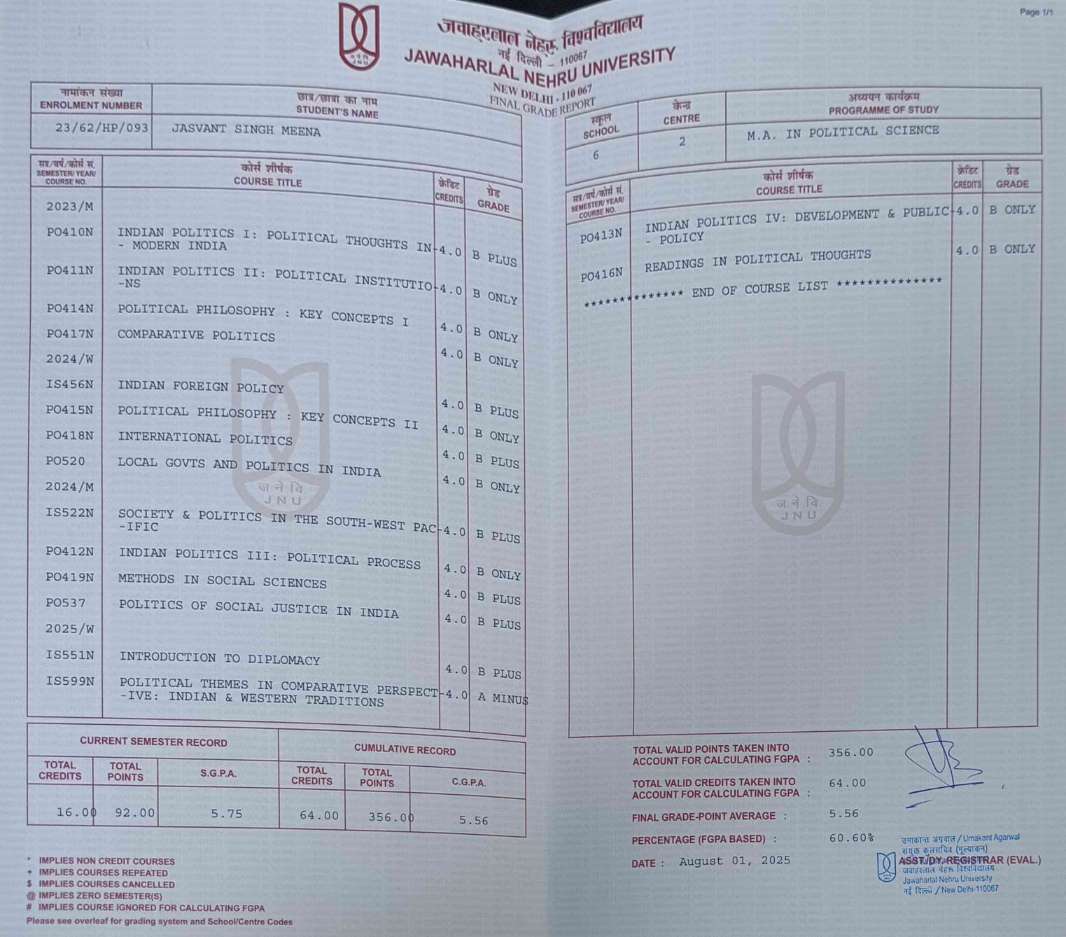 Page 1/1
जवाहरलाल नेहरू विश्वविद्यालय
नई दिल्ली – 110067
JAWAHARLAL NEHRU UNIVERSITY
NEW DELHI - 110 067
FINAL GRADE REPORT
ज ने वि
JNU
नामांकन संख्या
ENROLMENT NUMBER
छात्र/छात्रा का नाम
STUDENT'S NAME
23/62/HP/093 JASVANT SINGH MEENA
स्कूल
SCHOOL
केन्द्र
CENTRE
अध्ययन कार्यक्रम
PROGRAMME OF STUDY
6 2 M.A. IN POLITICAL SCIENCE
सत्र/वर्ष/कोर्स सं.
SEMESTER/YEAR/
COURSE NO.
कोर्स शीर्षक
COURSE TITLE
क्रेडिट
CREDITS
ग्रेड
GRADE
2023/M
PO410N INDIAN POLITICS I: POLITICAL THOUGHTS IN-4.0 B PLUS
- MODERN INDIA
PO411N INDIAN POLITICS II: POLITICAL INSTITUTIO-4.0 B ONLY
-NS
PO414N POLITICAL PHILOSOPHY : KEY CONCEPTS I 4.0 B ONLY
PO417N COMPARATIVE POLITICS 4.0 B ONLY
2024/W
IS456N INDIAN FOREIGN POLICY 4.0 B PLUS
PO415N POLITICAL PHILOSOPHY : KEY CONCEPTS II 4.0 B ONLY
PO418N INTERNATIONAL POLITICS 4.0 B PLUS
PO520 LOCAL GOVTS AND POLITICS IN INDIA 4.0 B ONLY
2024/M
IS522N SOCIETY & POLITICS IN THE SOUTH-WEST PAC-4.0 B PLUS
-IFIC
PO412N INDIAN POLITICS III: POLITICAL PROCESS 4.0 B ONLY
PO419N METHODS IN SOCIAL SCIENCES 4.0 B PLUS
PO537 POLITICS OF SOCIAL JUSTICE IN INDIA 4.0 B PLUS
2025/W
IS551N INTRODUCTION TO DIPLOMACY 4.0 B PLUS
IS599N POLITICAL THEMES IN COMPARATIVE PERSPECT-4.0 A MINUS
-IVE: INDIAN & WESTERN TRADITIONS
ज ने वि
JNU
सत्र/वर्ष/कोर्स सं.
SEMESTER/YEAR/
COURSE NO.
कोर्स शीर्षक
COURSE TITLE
क्रेडिट
CREDITS
ग्रेड
GRADE
PO413N INDIAN POLITICS IV: DEVELOPMENT & PUBLIC-4.0 B ONLY
- POLICY
PO416N READINGS IN POLITICAL THOUGHTS 4.0 B ONLY
************** END OF COURSE LIST **************
ज ने वि
JNU
CURRENT SEMESTER RECORD CUMULATIVE RECORD
TOTAL CREDITS TOTAL POINTS S.G.P.A. TOTAL CREDITS TOTAL POINTS C.G.P.A.
16.00 92.00 5.75 64.00 356.00 5.56
* IMPLIES NON CREDIT COURSES
+ IMPLIES COURSES REPEATED
$ IMPLIES COURSES CANCELLED
@ IMPLIES ZERO SEMESTER(S)
# IMPLIES COURSE IGNORED FOR CALCULATING FGPA
Please see overleaf for grading system and School/Centre Codes
TOTAL VALID POINTS TAKEN INTO
ACCOUNT FOR CALCULATING FGPA : 356.00
TOTAL VALID CREDITS TAKEN INTO
ACCOUNT FOR CALCULATING FGPA : 64.00
FINAL GRADE-POINT AVERAGE : 5.56
PERCENTAGE (FGPA BASED) : 60.60%
DATE : August 01, 2025
उमाकान्त अग्रवाल / Umakant Agarwal
(मूल्यांकन)
ASSTT./DY. REGISTRAR (EVAL.)
जवाहरलाल नेहरू विश्वविद्यालय
Jawaharlal Nehru University
नई दिल्ली / New Delhi-110067